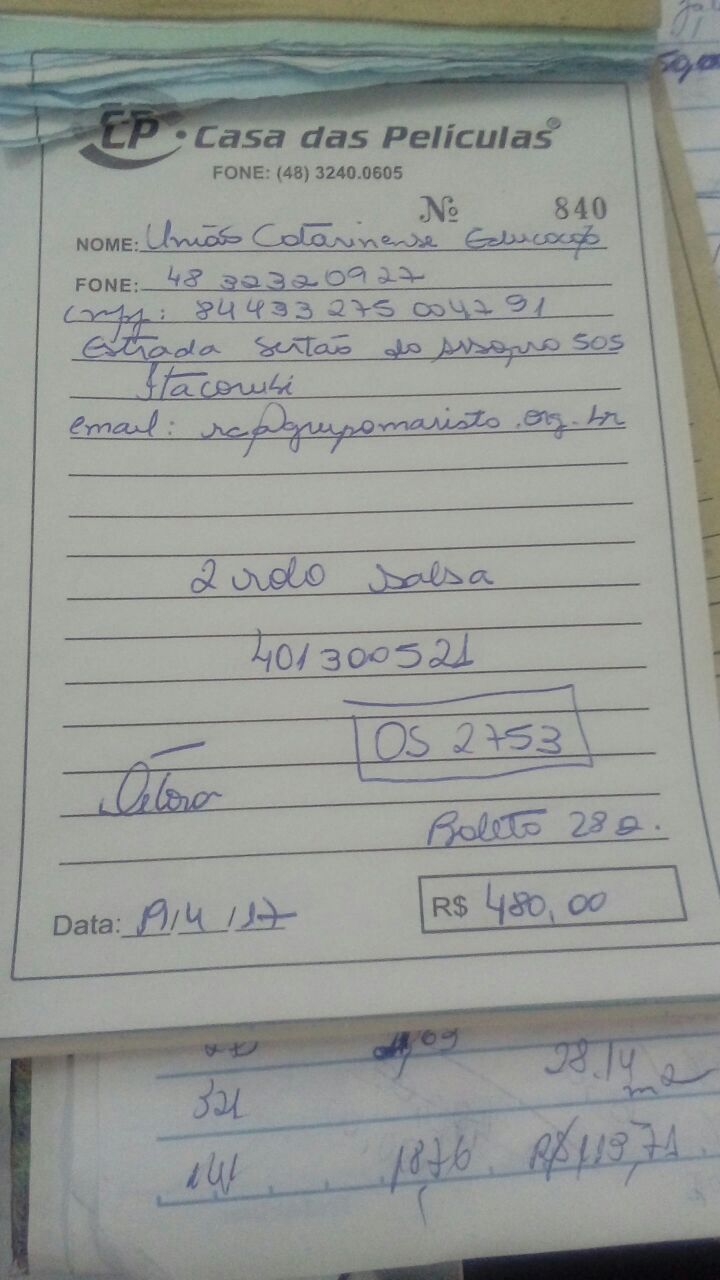 CP · Casa das Películas®
FONE: (48) 3240.0605
Nº 840
NOME: União Catarinense Educação
FONE: 48 32320927
cnpj: 84433275 0047 91
Estrada Sertão do Assopro 505
Itacorubi
email: rcp@grupomarista.org.br
2 rolo salsa
401300521
OS 2753
Débora
Boleto 28 d.
Data: 19/4/17 R$ 480,00
28.14
321 m2
141 1876 R$ 119,71